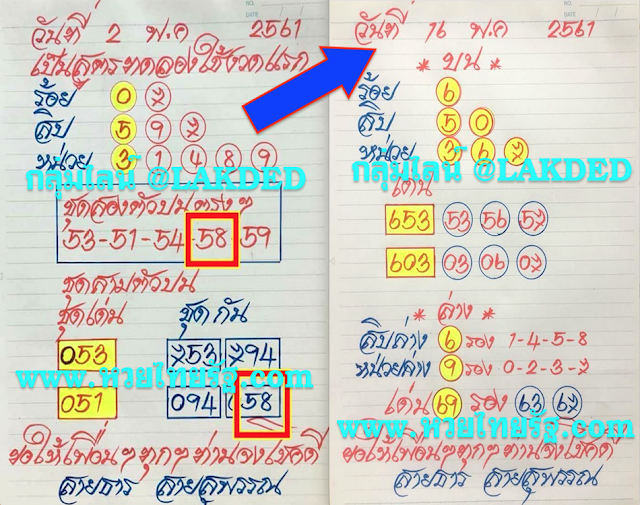 NO.
DATE
วันที่ 2 พ.ค 2561
เป็นสูตรทดลองใช้งวดแรก
ร้อย 0 7
สิบ 5 9 7
หน่วย 3 1 4 8 9
กลุ่มไลน์ @LAKDED
ชุดสองตัวบนตรงๆ
53-51-54-58-59
ชุดสามตัวบน
ชุดเด่น ชุดกัน
053 753 794
www.หวยไทยรัฐ.com
051 094 058
ขอให้เพื่อนๆทุกๆท่านจงโชคดี
สายธาร สายสุพรรณ
NO.
DATE
วันที่ 16 พ.ค 2561
* บน *
ร้อย 6
สิบ 5 0
หน่วย 3 6 7
กลุ่มไลน์ @LAKDED
เด่น
653 53 56 57
603 03 06 07
* ล่าง *
สิบล่าง 6 รอง 1-4-5-8
หน่วยล่าง 9 รอง 0-2-3-7
เด่น 69 รอง 63 67
www.หวยไทยรัฐ.com
ขอให้เพื่อนๆทุกๆท่านจงโชคดี
สายธาร สายสุพรรณ